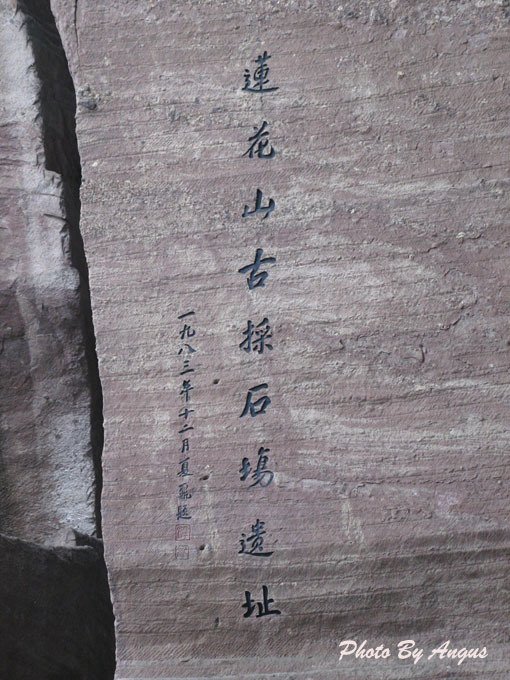 蓮花山古採石場遺址
一九八三年十二月夏
Photo By Angus